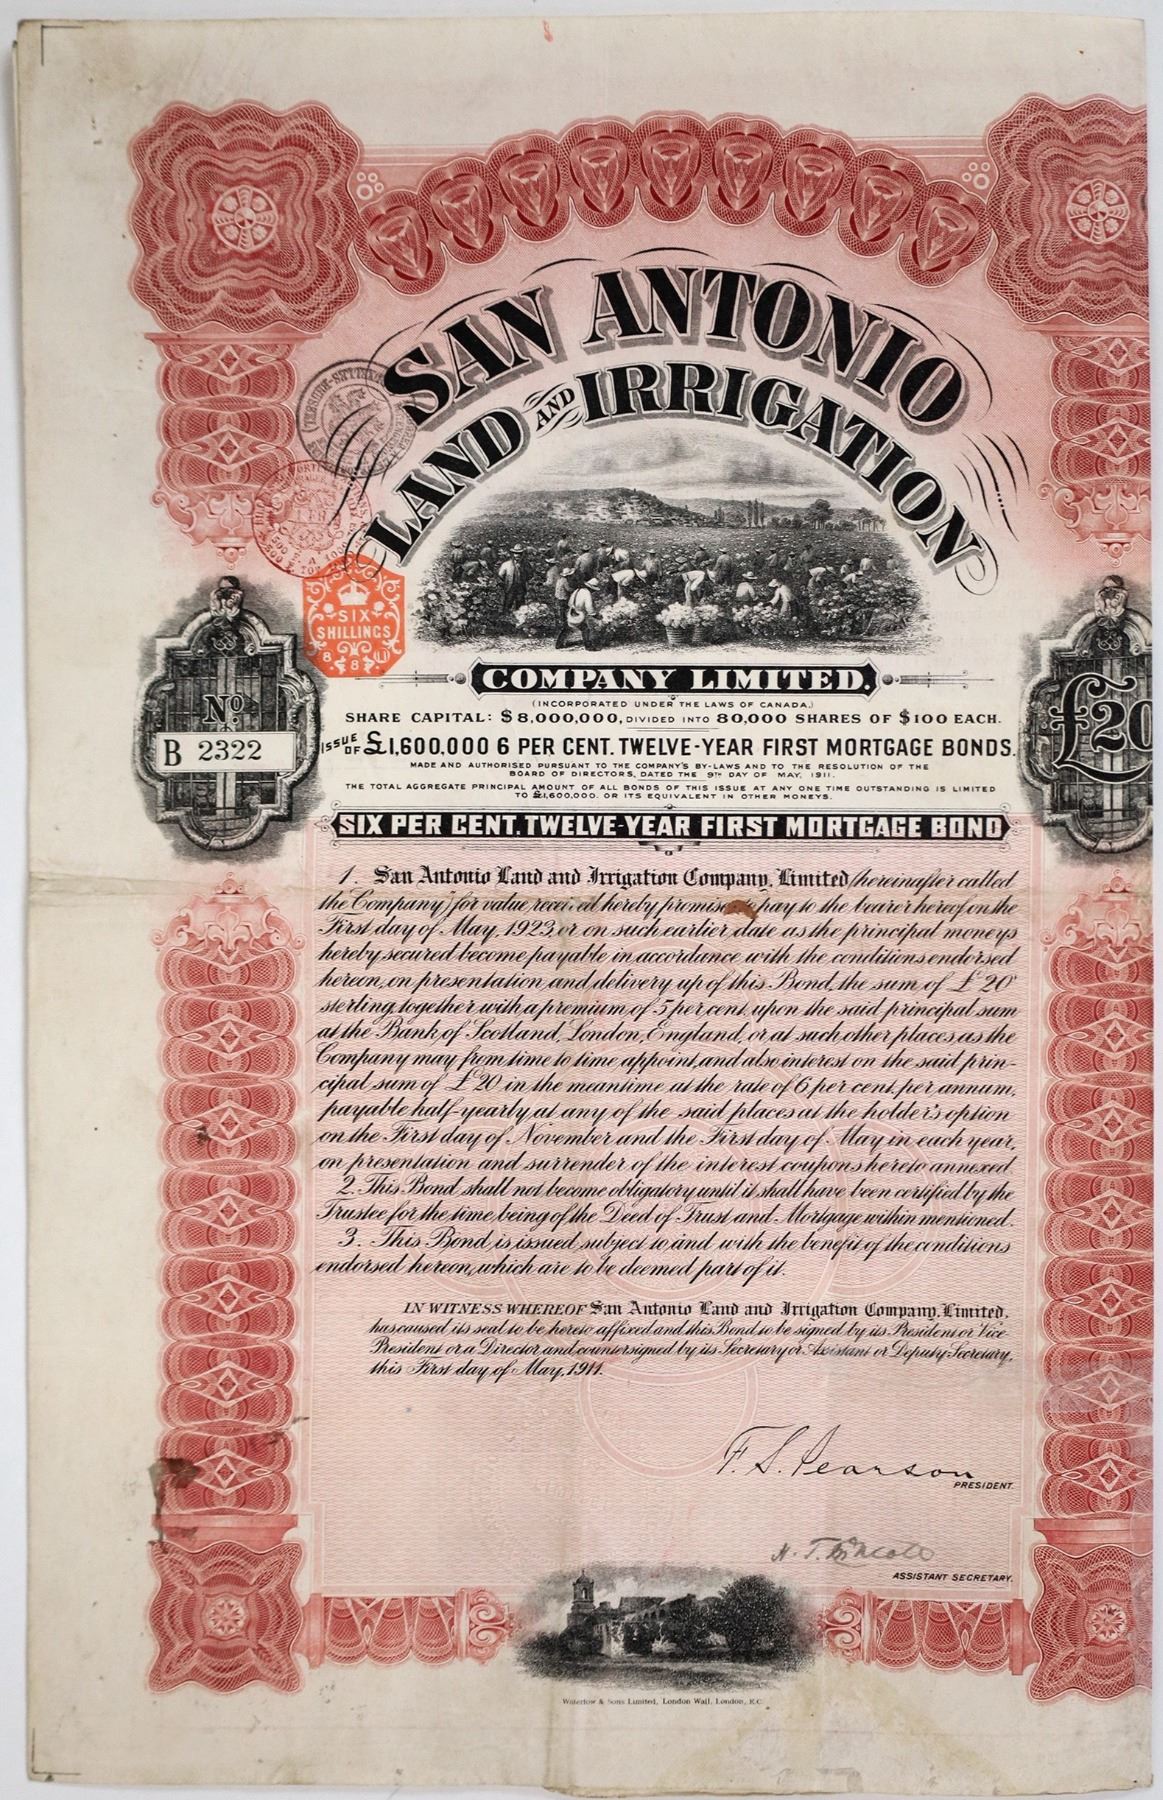 SAN ANTONIO
LAND AND IRRIGATION
SIX
SHILLINGS
8 . 8 . (L)
COMPANY LIMITED.
(INCORPORATED UNDER THE LAWS OF CANADA.)
SHARE CAPITAL: $8,000,000, DIVIDED INTO 80,000 SHARES OF $100 EACH.
No.
B 2322
£20
ISSUE OF £1,600,000 6 PER CENT. TWELVE-YEAR FIRST MORTGAGE BONDS.
MADE AND AUTHORISED PURSUANT TO THE COMPANY'S BY-LAWS AND TO THE RESOLUTION OF THE
BOARD OF DIRECTORS, DATED THE 9TH DAY OF MAY, 1911.
THE TOTAL AGGREGATE PRINCIPAL AMOUNT OF ALL BONDS OF THIS ISSUE AT ANY ONE TIME OUTSTANDING IS LIMITED
TO £1,600,000. OR ITS EQUIVALENT IN OTHER MONEYS.
SIX PER CENT. TWELVE-YEAR FIRST MORTGAGE BOND
1. San Antonio Land and Irrigation Company, Limited (hereinafter called
the "Company") for value received hereby promises to pay to the bearer hereof on the
First day of May, 1923, or on such earlier date as the principal moneys
hereby secured become payable in accordance with the conditions endorsed
hereon, on presentation and delivery up of this Bond, the sum of £20
sterling, together with a premium of 5 per cent. upon the said principal sum
at the Bank of Scotland, London, England, or at such other places as the
Company may from time to time appoint, and also interest on the said prin-
cipal sum of £20 in the meantime at the rate of 6 per cent. per annum,
payable half-yearly at any of the said places at the holder's option
on the First day of November and the First day of May in each year,
on presentation and surrender of the interest coupons hereto annexed.
2. This Bond shall not become obligatory until it shall have been certified by the
Trustee for the time being of the Deed of Trust and Mortgage within mentioned.
3. This Bond is issued subject to and with the benefit of the conditions
endorsed hereon, which are to be deemed part of it.
IN WITNESS WHEREOF San Antonio Land and Irrigation Company, Limited,
has caused its seal to be hereto affixed and this Bond to be signed by its President or Vice-
President or a Director and countersigned by its Secretary or Assistant or Deputy-Secretary,
this First day of May, 1911.
F. S. Pearson
PRESIDENT.
ASSISTANT SECRETARY.
Waterlow & Sons Limited, London Wall, London, E.C.